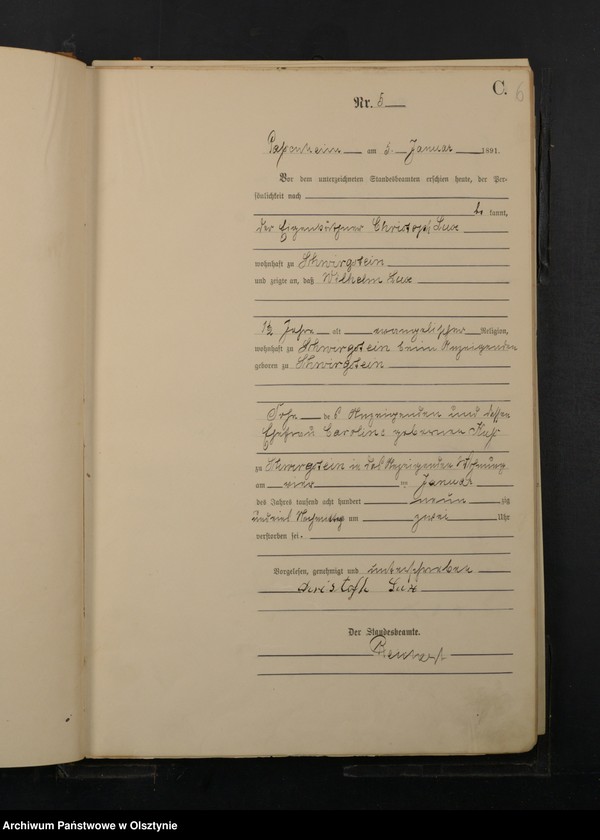 C. 6
Nr. 5
am 5. Januar 1891.
Vor dem unterzeichneten Standesbeamten erschien heute, der Per-
sönlichkeit nach
be kannt,
der Eigenkäthner Christoph Lux
wohnhaft zu Schwirgstein
und zeigte an, daß Wilhelm Lux
12 Jahre alt evangelischer Religion,
wohnhaft zu Schwirgstein beim Anzeigenden
geboren zu Schwirgstein
Sohn des Anzeigenden und dessen
Ehefrau Caroline geborenen
zu Schwirgstein in des Anzeigenden Wohnung
am vier ten Januar
des Jahres tausend acht hundert neun zig
und eins Nachmittag um zwei Uhr
verstorben sei.
Vorgelesen, genehmigt und unterschrieben
Christoph Lux
Der Standesbeamte.
Archiwum Państwowe w Olsztynie